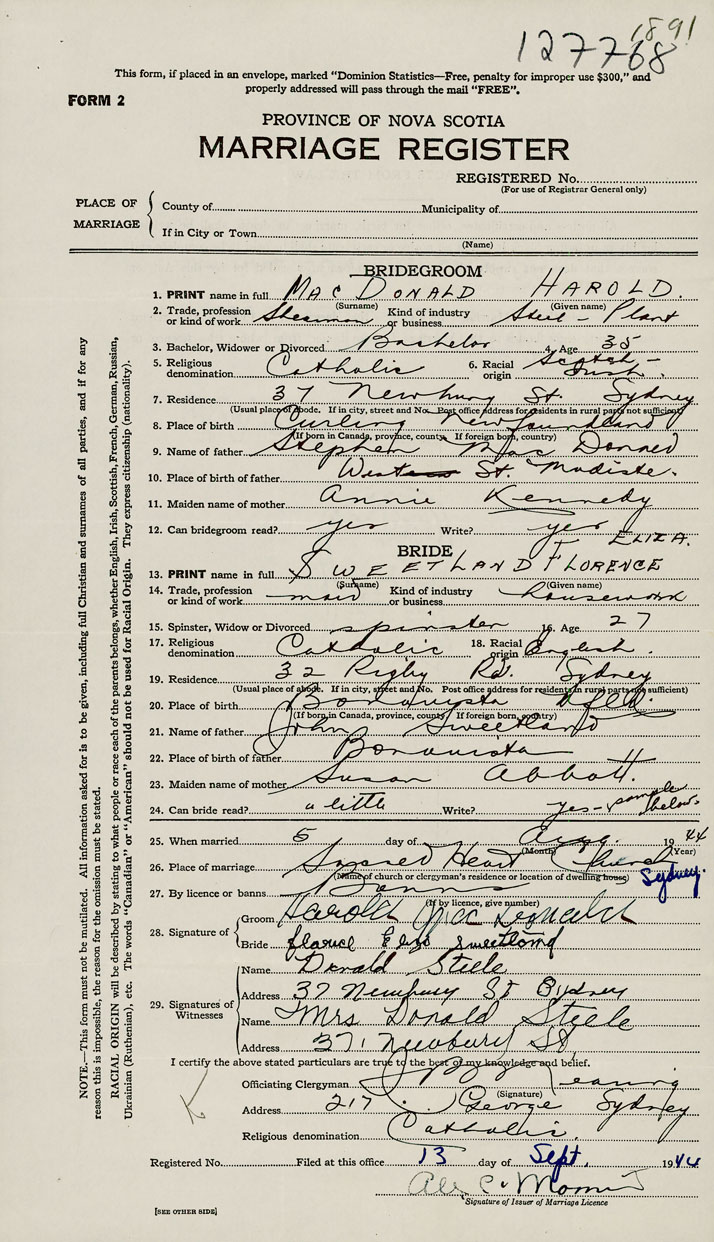 1891
127768
This form, if placed in an envelope, marked "Dominion Statistics—Free, penalty for improper use $300," and
properly addressed will pass through the mail "FREE".
FORM 2
PROVINCE OF NOVA SCOTIA
MARRIAGE REGISTER
REGISTERED No.
(For use of Registrar General only)
PLACE OF MARRIAGE
County of Municipality of
If in City or Town
(Name)
BRIDEGROOM
1. PRINT name in full MAC DONALD HAROLD.
(Surname) (Given name)
2. Trade, profession or kind of work Shearman Kind of industry or business Steel - Plant
3. Bachelor, Widower or Divorced Bachelor 4. Age 35
5. Religious denomination Catholic 6. Racial origin Scotch - Irish.
7. Residence 37 Newbury St. Sydney
(Usual place of abode. If in city, street and No. Post office address for residents in rural parts not sufficient)
8. Place of birth Curling Newfoundland
(If born in Canada, province, county. If foreign born, country)
9. Name of father Stephen Mac Donald
10. Place of birth of father St. Modiste.
11. Maiden name of mother Annie Kennedy
12. Can bridegroom read? yes Write? yes
BRIDE
ELIZA.
13. PRINT name in full SWEETLAND FLORENCE
(Surname) (Given name)
14. Trade, profession or kind of work maid Kind of industry or business housework
15. Spinster, Widow or Divorced spinster 16. Age 27
17. Religious denomination Catholic 18. Racial origin English.
19. Residence 32 Rigby Rd. Sydney
(Usual place of abode. If in city, street and No. Post office address for residents in rural parts not sufficient)
20. Place of birth Bonavista Nfld.
(If born in Canada, province, county If foreign born, country)
21. Name of father John Sweetland
22. Place of birth of father Bonavista
23. Maiden name of mother Susan Abbott.
24. Can bride read? a little Write? yes - sample below.
25. When married 5 day of Aug. 19 44
(Month) (Year)
26. Place of marriage Sacred Heart Church Sydney.
(Name of church or clergyman's residence or location of dwelling house)
27. By licence or banns Banns
(If by licence, give number)
28. Signature of Groom Harold Mac Donald
Bride florence Eliza sweetland
29. Signatures of Witnesses
Name Donald Steele
Address 37 Newbury St Sydney
Name Mrs Donald Steele
Address 37, Newbury St,
I certify the above stated particulars are true to the best of my knowledge and belief.
Officiating Clergyman
(Signature)
Address 217 George Sydney
Religious denomination Catholic.
Registered No. Filed at this office 13 day of Sept. 19 44
Signature of Issuer of Marriage Licence
[SEE OTHER SIDE]
NOTE.—This form must not be mutilated. All information asked for is to be given, including full Christian and surnames of all parties, and if for any
reason this is impossible, the reason for the omission must be stated.
RACIAL ORIGIN will be described by stating to what people or race each of the parents belongs, whether English, Irish, Scottish, French, German, Russian,
Ukrainian (Ruthenian), etc. The words "Canadian" or "American" should not be used for Racial Origin. They express citizenship (nationality).